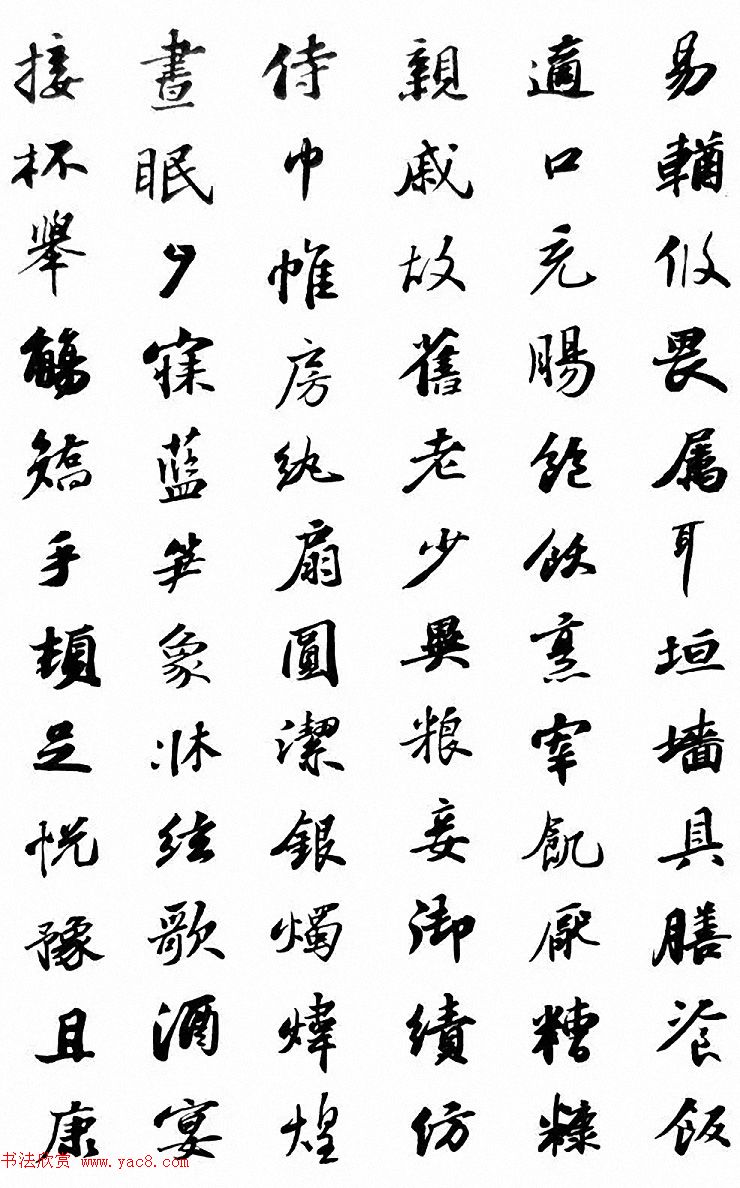 易輶攸畏屬耳垣墻具膳飡飯
適口充腸飽飫烹宰飢厭糟糠
親戚故舊老少異粮妾御績紡
侍巾帷房紈扇圓潔銀燭煒煌
晝眠夕寐藍笋象牀絃歌酒宴
接杯舉觴矯手頓足悦豫且康
书法欣赏 www.yac8.com